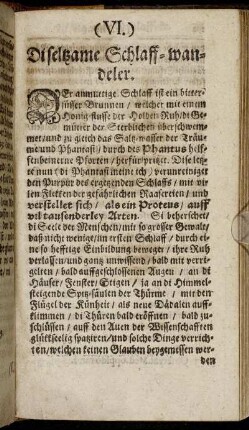 (VI.)
Di seltzame Schlaff-wan-
deler.
DEr anmutige Schlaff ist ein bitter-
süsser Brunnen / welcher mit einem
Honig-flusse der Holden Ruh / di Ge-
müter der Sterblichen überschwem-
met / und zu gleich das Saltz-wasser der Träu-
me und Phantasi / durch des Phantus helf-
fenbeinerne Pforten / herfür gisset. Dise letz-
te nun ( di Phantasi meine ich / verunreiniget
den Purpur des ergetzenden Schlaffs / mit vie-
len Flekken der gefährlichen Raasereien / und
verstellet sich / als ein Proteus / auff
vil tausenderley Arten. Si beherschet /
di Seele des Menschen / mit so grosser Gewalt /
daß nicht wenige / im tieffen Schlaff / durch ei-
ne so hefftige Einbildung beweget / ihre Ruh
verlassen / und gantz unwissend / bald mit verri-
gelten / bald auffgeschlossenen Augen / an di
Häuser / Fenster / Stigen / ja an di Himmel-
steigende Spitz-säulen der Thürme / mit den
Flügel der Künheit / als neue Dädalen auff-
klimmen / di Thüren bald eröffnen / bald zu-
schlüssen / auff den Auen der Wissenschafften
glükseelig spatziren / und solche Dinge verrich-
ten / welchen keinen Glauben beygemessen wer-
den